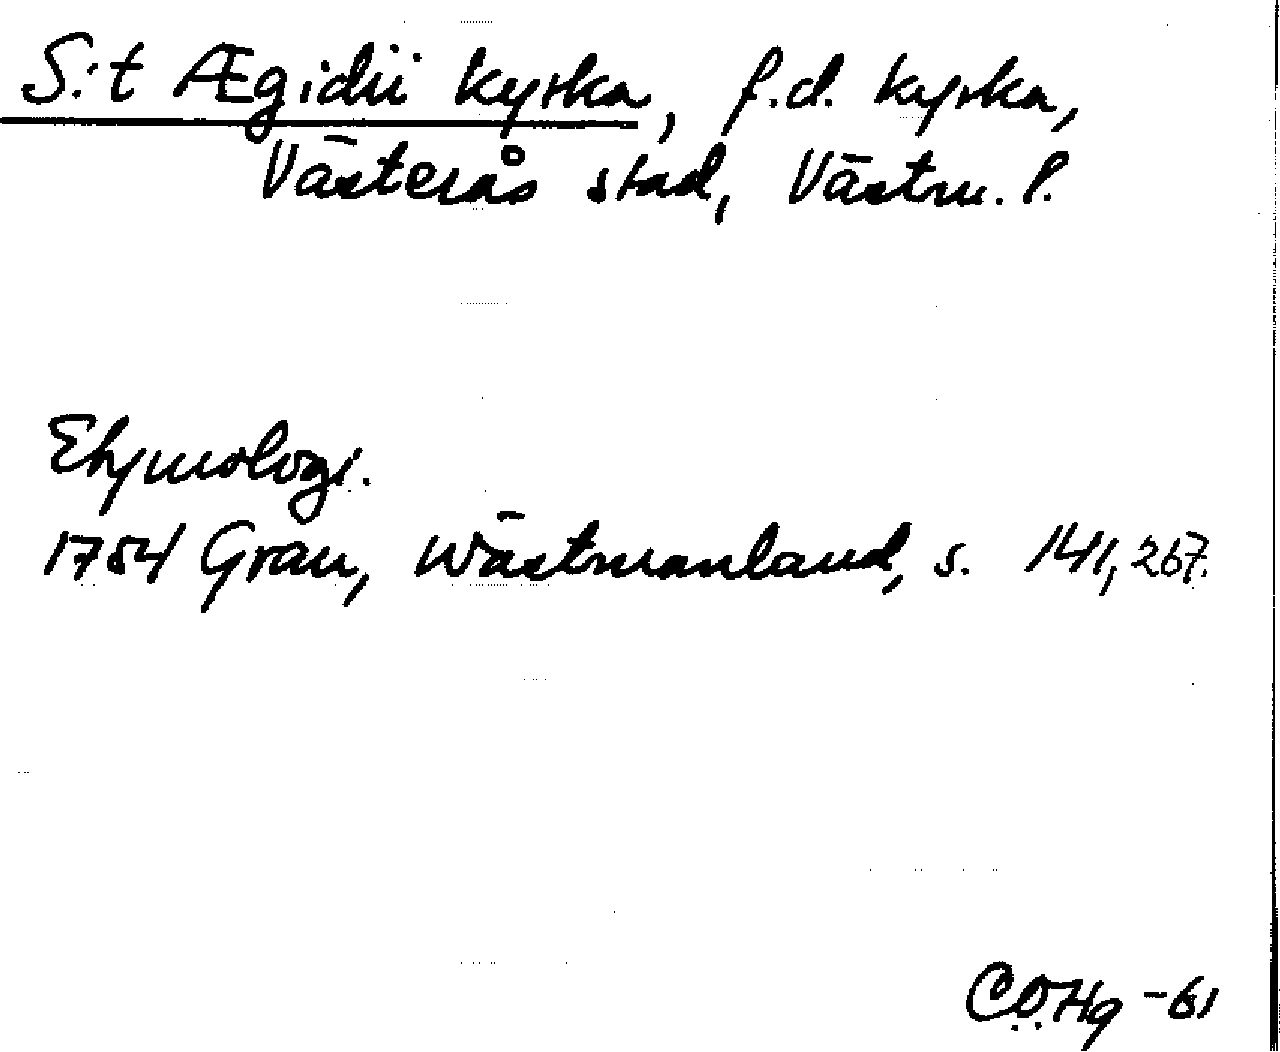 S:t Ægidii kyrka, f.d. kyrka,
Västerås stad, Västm. l.
Etymologi.
1754 Grau, Wästmanland, s. 141, 267.
COHg -61